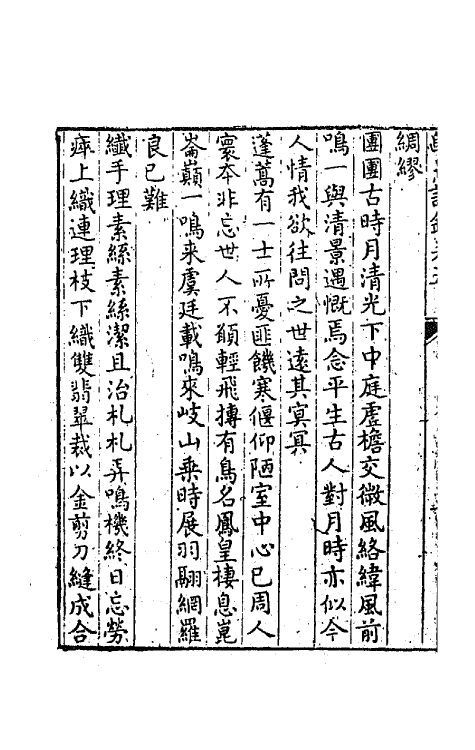 綢繆
團團古時月清光下中庭虛檐交微風絡緯風前
鳴一與清景遇慨焉念平生古人對月時亦似今
人情我欲往問之世遠其冥冥
蓬蒿有一士所憂匪饑寒偃仰陋室中心已周人
寰夲非忘世人不願輕飛摶有鳥名鳳皇棲息崑
崙巔一鳴来虞廷載鳴來岐山乗時展羽翮網羅
良已難
纎手理素絲素絲潔且治札札弄鳴機終日忘勞
瘁上織連理枝下織雙翡翠裁以金剪刀縫成合